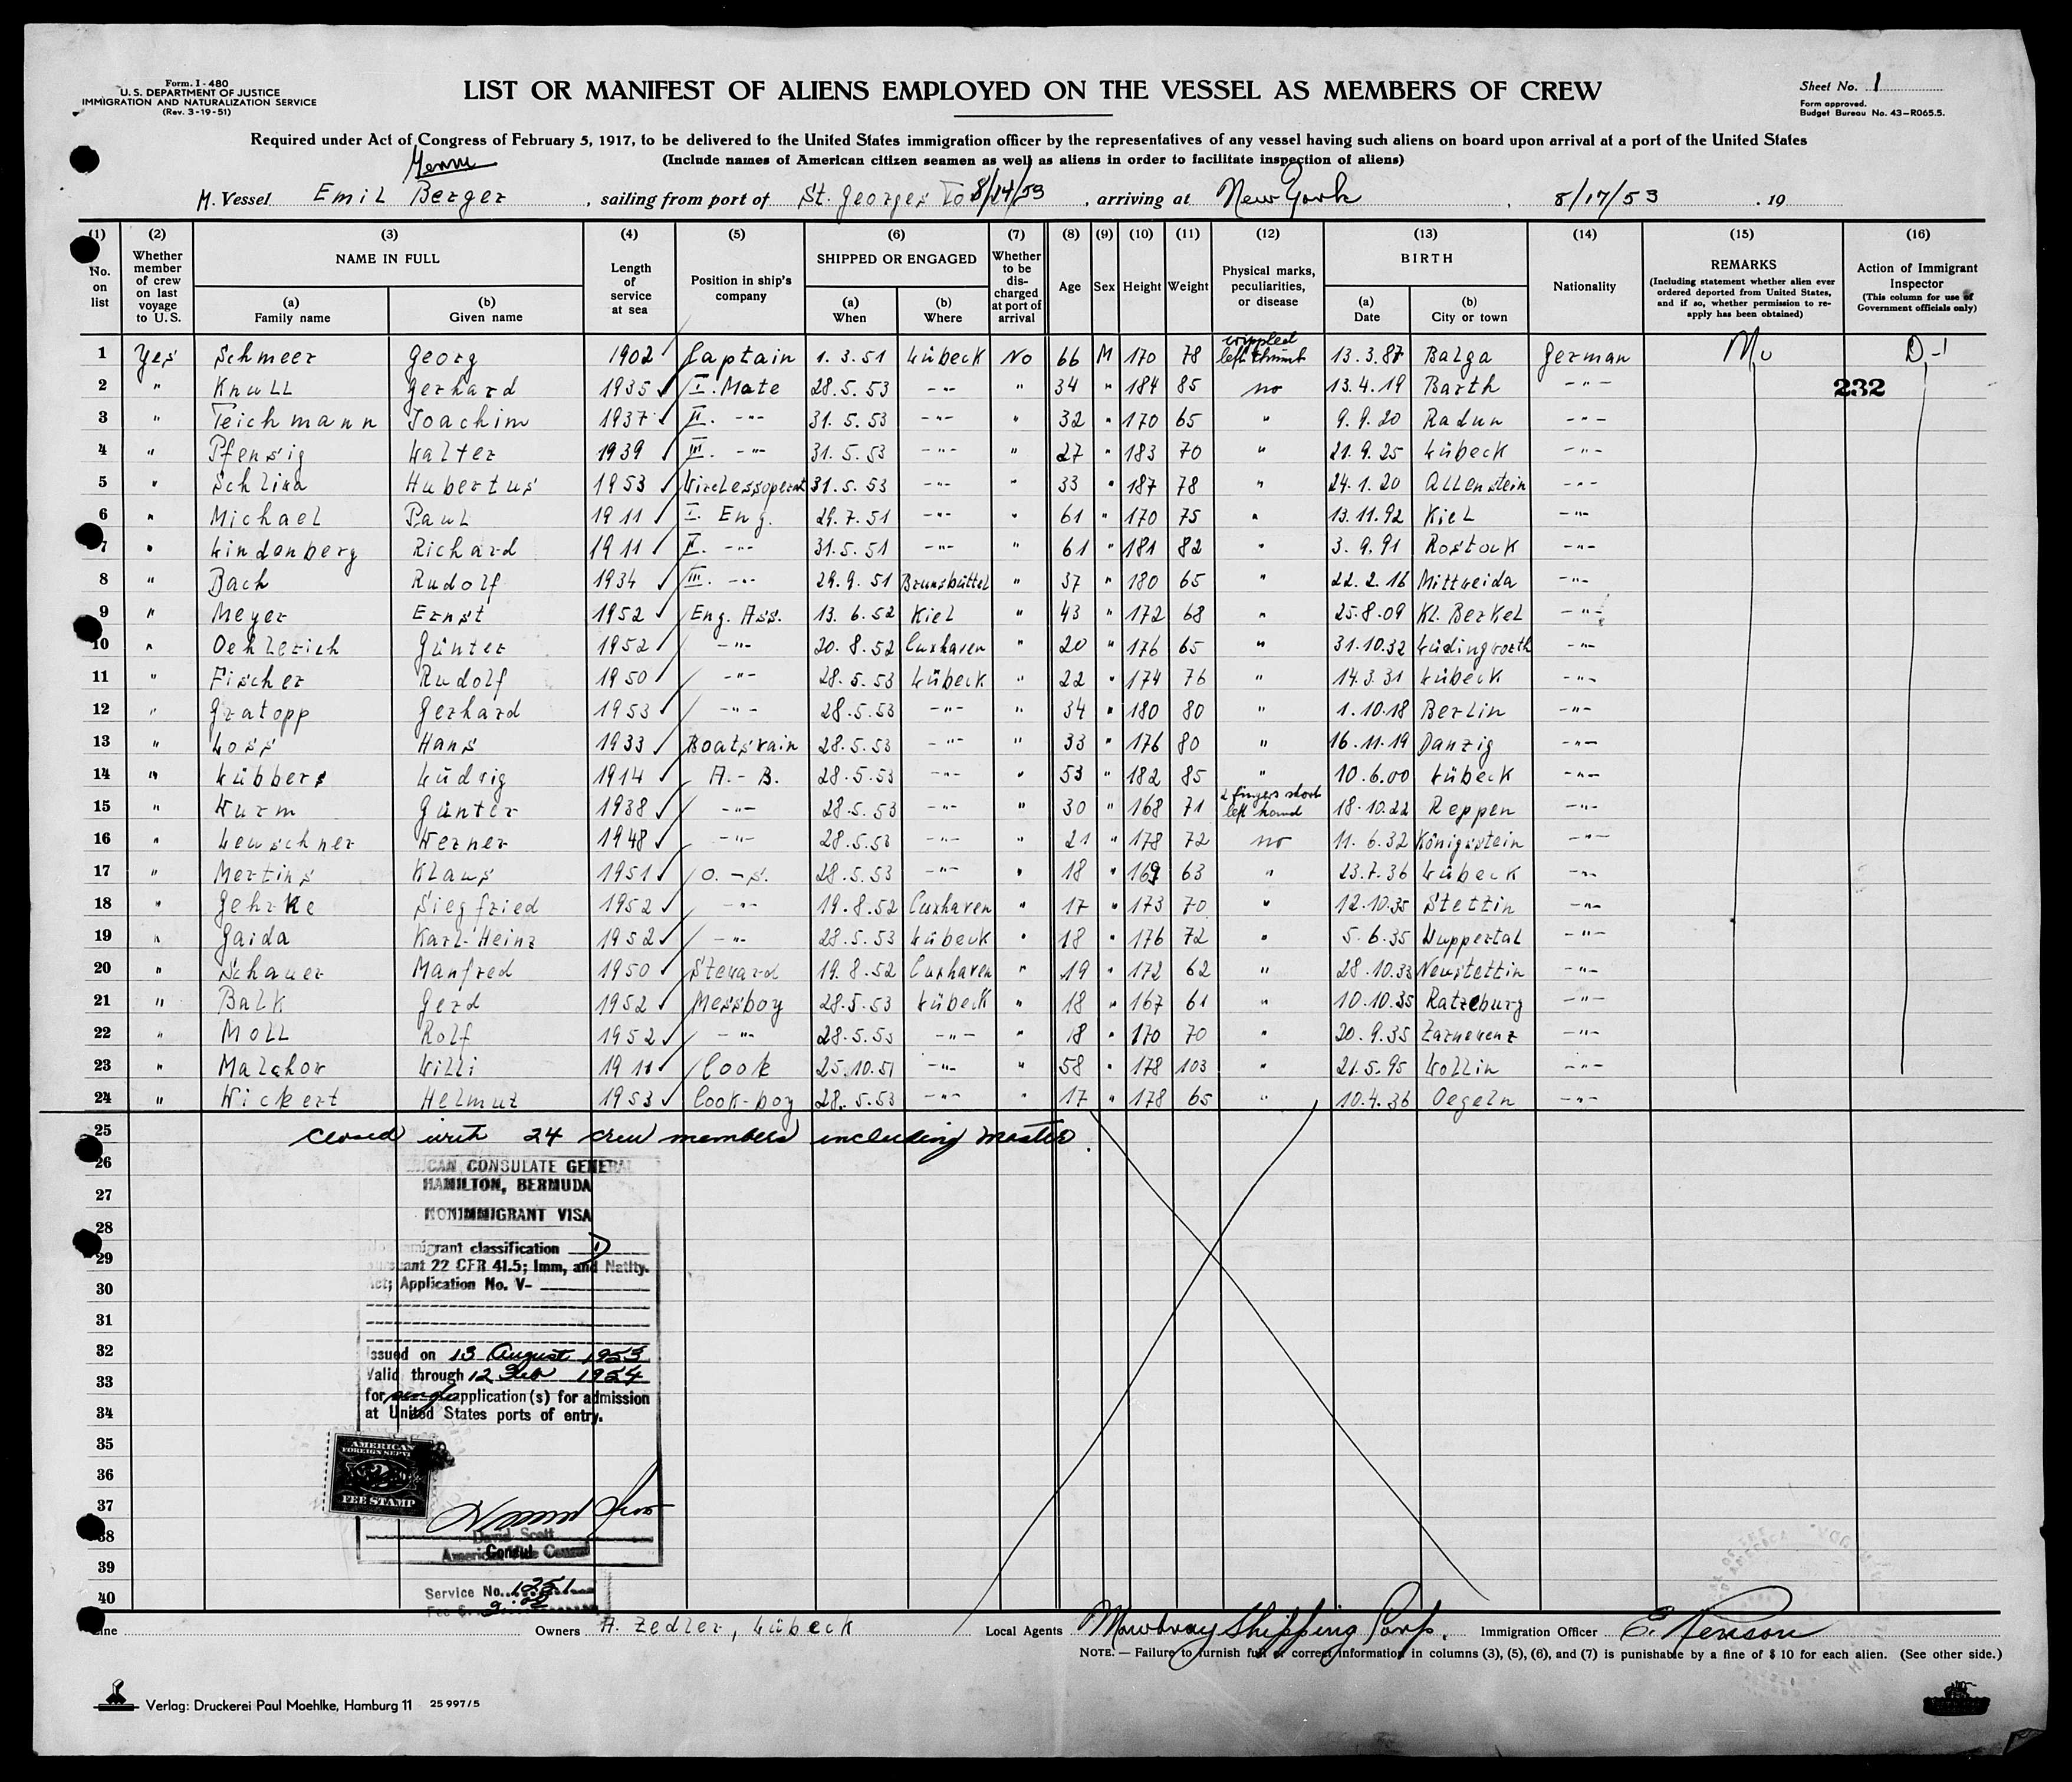 Form. I-480
U. S. DEPARTMENT OF JUSTICE
IMMIGRATION AND NATURALIZATION SERVICE
(Rev. 3-19-51)
LIST OR MANIFEST OF ALIENS EMPLOYED ON THE VESSEL AS MEMBERS OF CREW
Sheet No. 1
Form approved.
Budget Bureau No. 43-R065.5.
Required under Act of Congress of February 5, 1917, to be delivered to the United States immigration officer by the representatives of any vessel having such aliens on board upon arrival at a port of the United States
(Include names of American citizen seamen as well as aliens in order to facilitate inspection of aliens)
Germ
M. Vessel Emil Berger, sailing from port of St. Georges 8/14/53, arriving at New York, 8/17/53. 19
(1) No. on list (2) Whether member of crew on last voyage to U. S. (3) NAME IN FULL (a) Family name (b) Given name (4) Length of service at sea (5) Position in ship's company (6) SHIPPED OR ENGAGED (a) When (b) Where (7) Whether to be discharged at port of arrival (8) Age (9) Sex (10) Height (11) Weight (12) Physical marks, peculiarities, or disease (13) BIRTH (a) Date (b) City or town (14) Nationality (15) REMARKS (Including statement whether alien ever ordered deported from United States, and if so, whether permission to re-apply has been obtained) (16) Action of Immigrant Inspector (This column for use of Government officials only)
1 Yes Schmeer Georg 1902 Captain 1.3.51 Lübeck No 66 M 170 78 crippled left thumb 13.3.87 Balga German D-1
2 " Knull Gerhard 1935 I. Mate 28.5.53 -"- " 34 " 184 85 no 13.4.19 Barth -"- 232
3 " Teichmann Joachim 1937 II. -"- 31.5.53 -"- " 32 " 170 65 " 9.9.20 Radun -"-
4 " Pfensig Walter 1939 III. -"- 31.5.53 -"- " 27 " 183 70 " 21.9.25 Lübeck -"-
5 " Hubertus 1953 Wirelessoperat 31.5.53 -"- " 33 " 187 78 " 24.1.20 Allenstein -"-
6 " Michael Paul 1911 I. Eng. 29.7.51 -"- " 61 " 170 75 " 13.11.92 Kiel -"-
7 " Lindenberg Richard 1911 II. -"- 31.5.51 -"- " 61 " 181 82 " 3.9.91 Rostock -"-
8 " Bach Rudolf 1934 III. -"- 29.9.51 Brunsbüttel " 37 " 180 65 " 22.2.16 Mittweida -"-
9 " Meyer Ernst 1952 Eng. Ass. 13.6.52 Kiel " 43 " 172 68 " 25.8.09 Kl. Berkel -"-
10 " Oehlerich Günter 1952 -"- 20.8.52 Cuxhaven " 20 " 176 65 " 31.10.32 Lüdingworth -"-
11 " Fischer Rudolf 1950 -"- 28.5.53 Lübeck " 22 " 174 76 " 14.3.31 Lübeck -"-
12 " Gratopp Gerhard 1953 -"- 28.5.53 -"- " 34 " 180 80 " 1.10.18 Berlin -"-
13 " Loss Hans 1933 Boatswain 28.5.53 -"- " 33 " 176 80 " 16.11.19 Danzig -"-
14 " Lübbers Lüdwig 1914 A.-B. 28.5.53 -"- " 53 " 182 85 " 10.6.00 Lübeck -"-
15 " Wurm Günter 1938 -"- 28.5.53 -"- " 30 " 168 71 2 fingers short left hand 18.10.22 Reppen -"-
16 " Leuschner Werner 1948 -"- 28.5.53 -"- " 21 " 178 72 no 11.6.32 Königstein -"-
17 " Mertins Klaus 1951 O.-S. 28.5.53 -"- " 18 " 169 63 " 23.7.36 Lübeck -"-
18 " Gehrke Siegfried 1952 -"- 19.8.52 Cuxhaven " 17 " 173 70 " 12.10.35 Stettin -"-
19 " Gaida Karl-Heinz 1952 -"- 28.5.53 Lübeck " 18 " 176 72 " 5.6.35 Wuppertal -"-
20 " Schauer Manfred 1950 Steward 19.8.52 Cuxhaven " 19 " 172 62 " 28.10.33 Neustettin -"-
21 " Balk Gerd 1952 Messboy 28.5.53 Lübeck " 18 " 167 61 " 10.10.35 Ratzeburg -"-
22 " Moll Rolf 1952 -"- 28.5.53 -"- " 18 " 170 70 " 20.9.35 Zarnewenz -"-
23 " Malchow Willi 1911 Cook 25.10.51 -"- " 58 " 178 103 " 21.5.95 Wollin -"-
24 " Wickert Helmut 1953 Cook-boy 28.5.53 -"- " 17 " 178 65 " 10.4.36 Oegeln -"-
25 closed with 24 crew members including master.
26
27
28
29
30
31
32
33
34
35
36
37
38
39
40
AMERICAN CONSULATE GENERAL
HAMILTON, BERMUDA
NONIMMIGRANT VISA
Nonimmigrant classification D
pursuant 22 CFR 41.5; Imm, and Natlty.
Act; Application No. V-
Issued on 13 August 1953
Valid through 12 Feb 1954
for single application(s) for admission
at United States ports of entry.
AMERICAN
FOREIGN SERVICE
2
FEE STAMP
David Scott
American Vice Consul
Consul
Service No. 1251
Fee $.
Line Owners A. Zedler, Lübeck Local Agents Mowbray Shipping Corp. Immigration Officer
NOTE. — Failure to furnish full or correct information in columns (3), (5), (6), and (7) is punishable by a fine of $ 10 for each alien. (See other side.)
Verlag: Druckerei Paul Moehlke, Hamburg 11 25 997/5